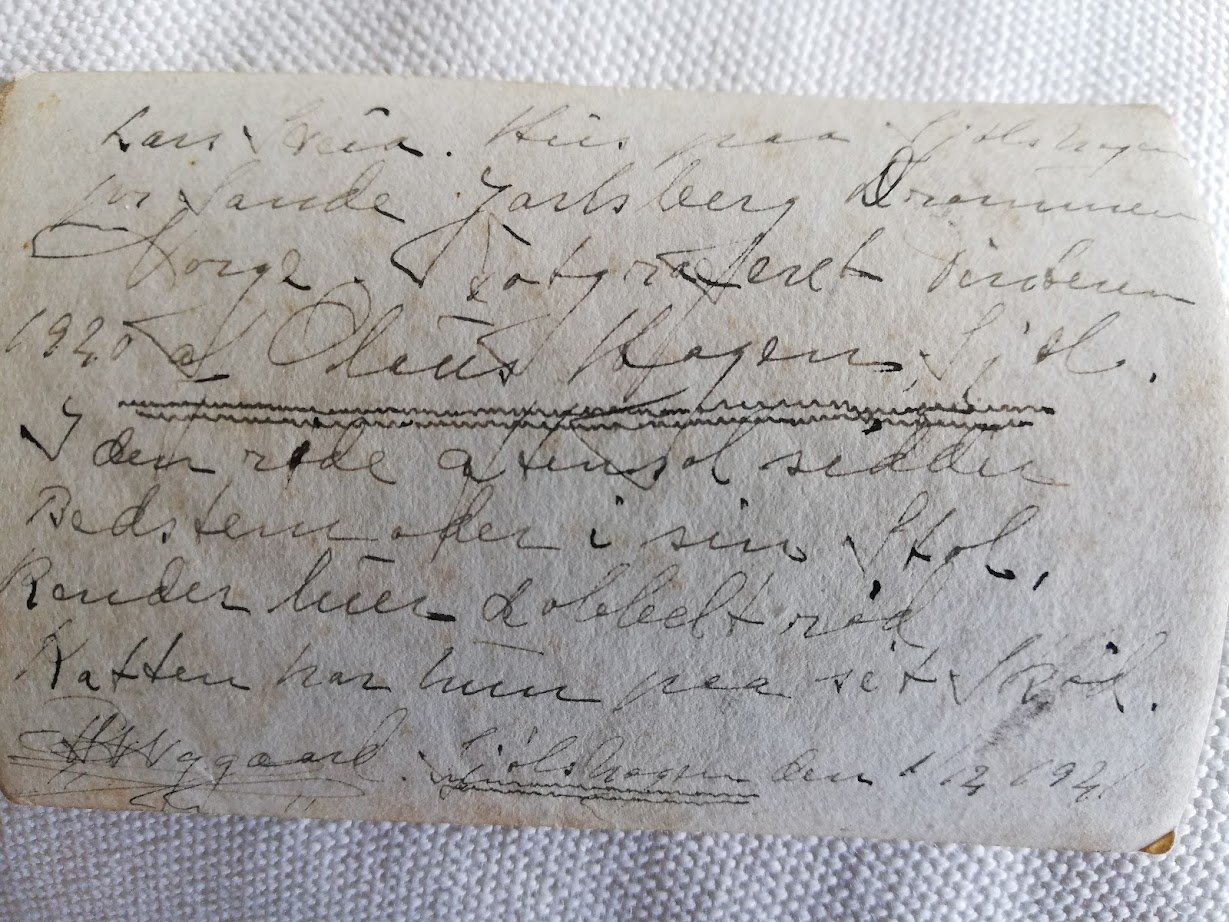 Lars Hus paa Sjølshagen
pr Sande Jarlsberg Drammen
Norge. Fotograferet Vinteren
1920 af Olaus Hagen, Sjøl.
I den røde aftensol sidder
Bedstemoder i sin Stol,
Rander luer dobbelt rød
Katten har hun paa sit Skød.
Nygaard. Sjølshagen den 1/12 192